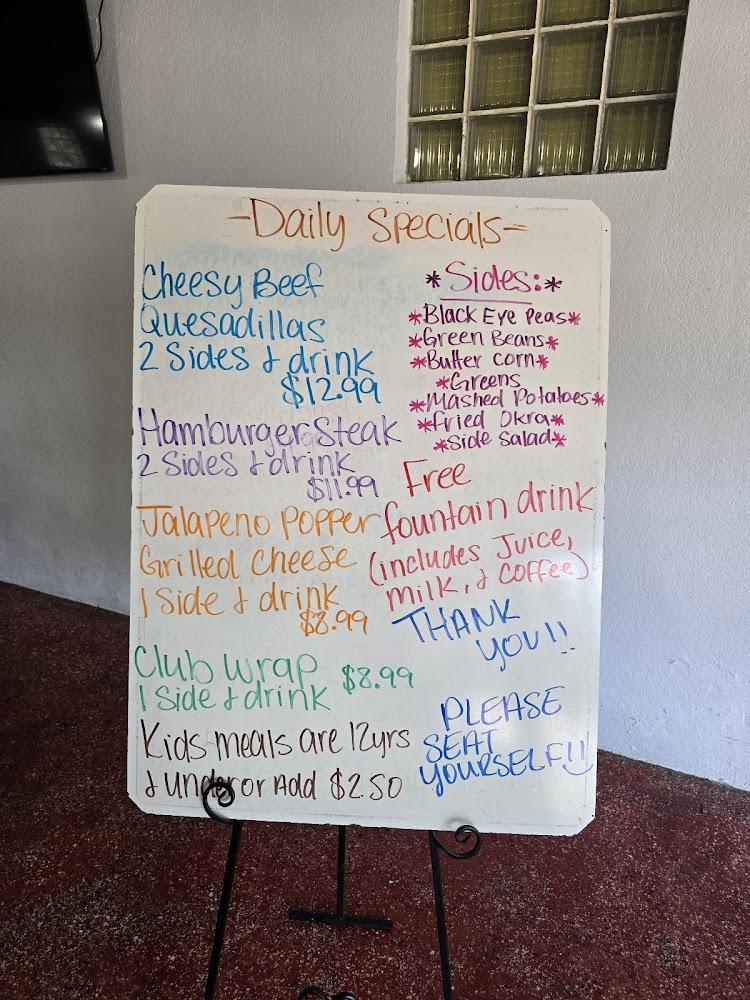 -Daily Specials-
Cheesy Beef
Quesadillas
2 Sides & drink
$12.99
Hamburger Steak
2 Sides & drink
$11.99
Jalapeno Popper
Grilled Cheese
1 Side & drink
$8.99
Club Wrap $8.99
1 Side & drink
Kids meals are 12yrs
& Under or Add $2.50
*Sides:*
*Black Eye Peas*
*Green Beans*
*Butter corn*
*Greens
*Mashed Potatoes*
*Fried Okra*
*Side Salad*
Free
fountain drink
(includes Juice,
milk, & coffee)
THANK
YOU!!
PLEASE
SEAT
YOURSELF!!